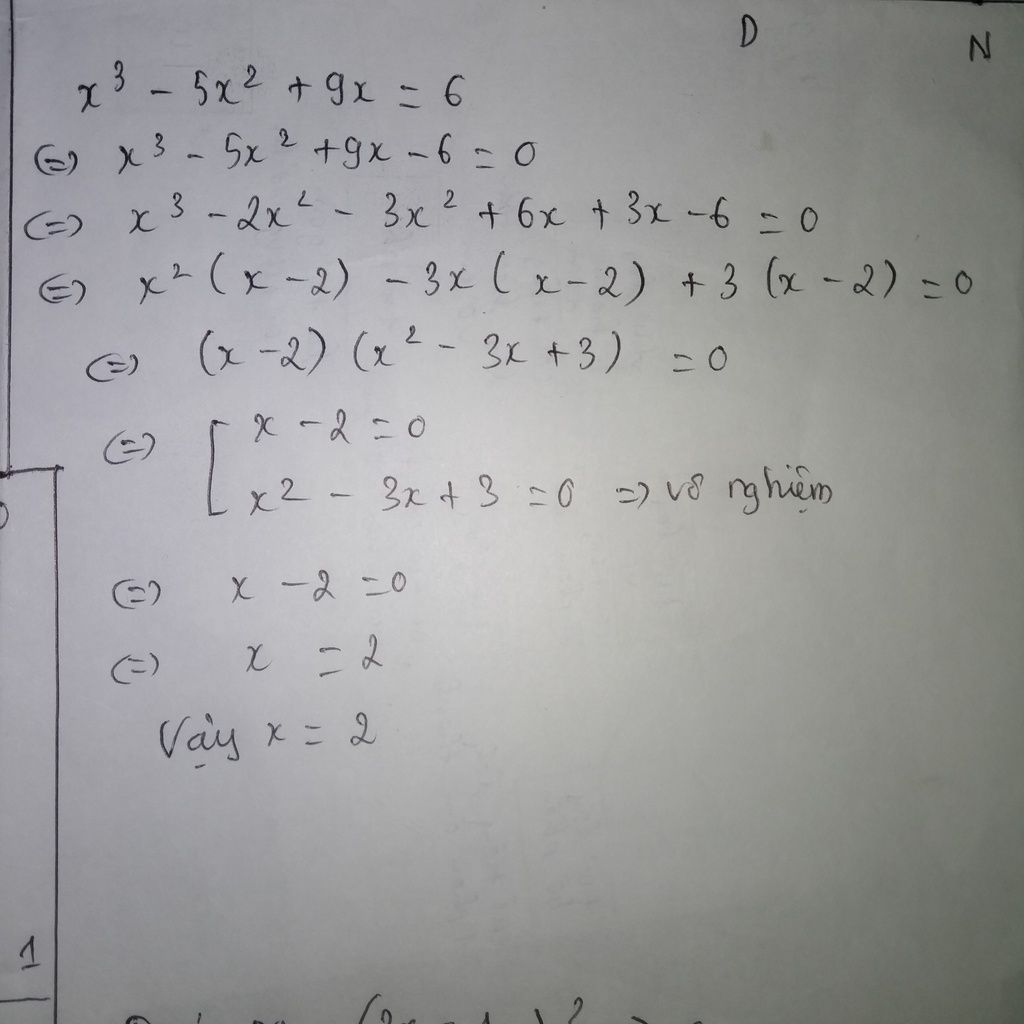 D
N
x³ - 5x² + 9x = 6
(=) x³ - 5x² + 9x - 6 = 0
(=) x³ - 2x² - 3x² + 6x + 3x - 6 = 0
(=) x² (x - 2) - 3x (x - 2) + 3 (x - 2) = 0
(=) (x - 2) (x² - 3x + 3) = 0
(=) [ x - 2 = 0
x² - 3x + 3 = 0 => vô nghiệm
(=) x - 2 = 0
(=) x = 2
Vậy x = 2
1